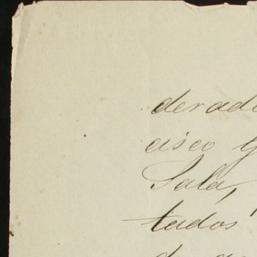 derad
cisco G
Sala,
tados